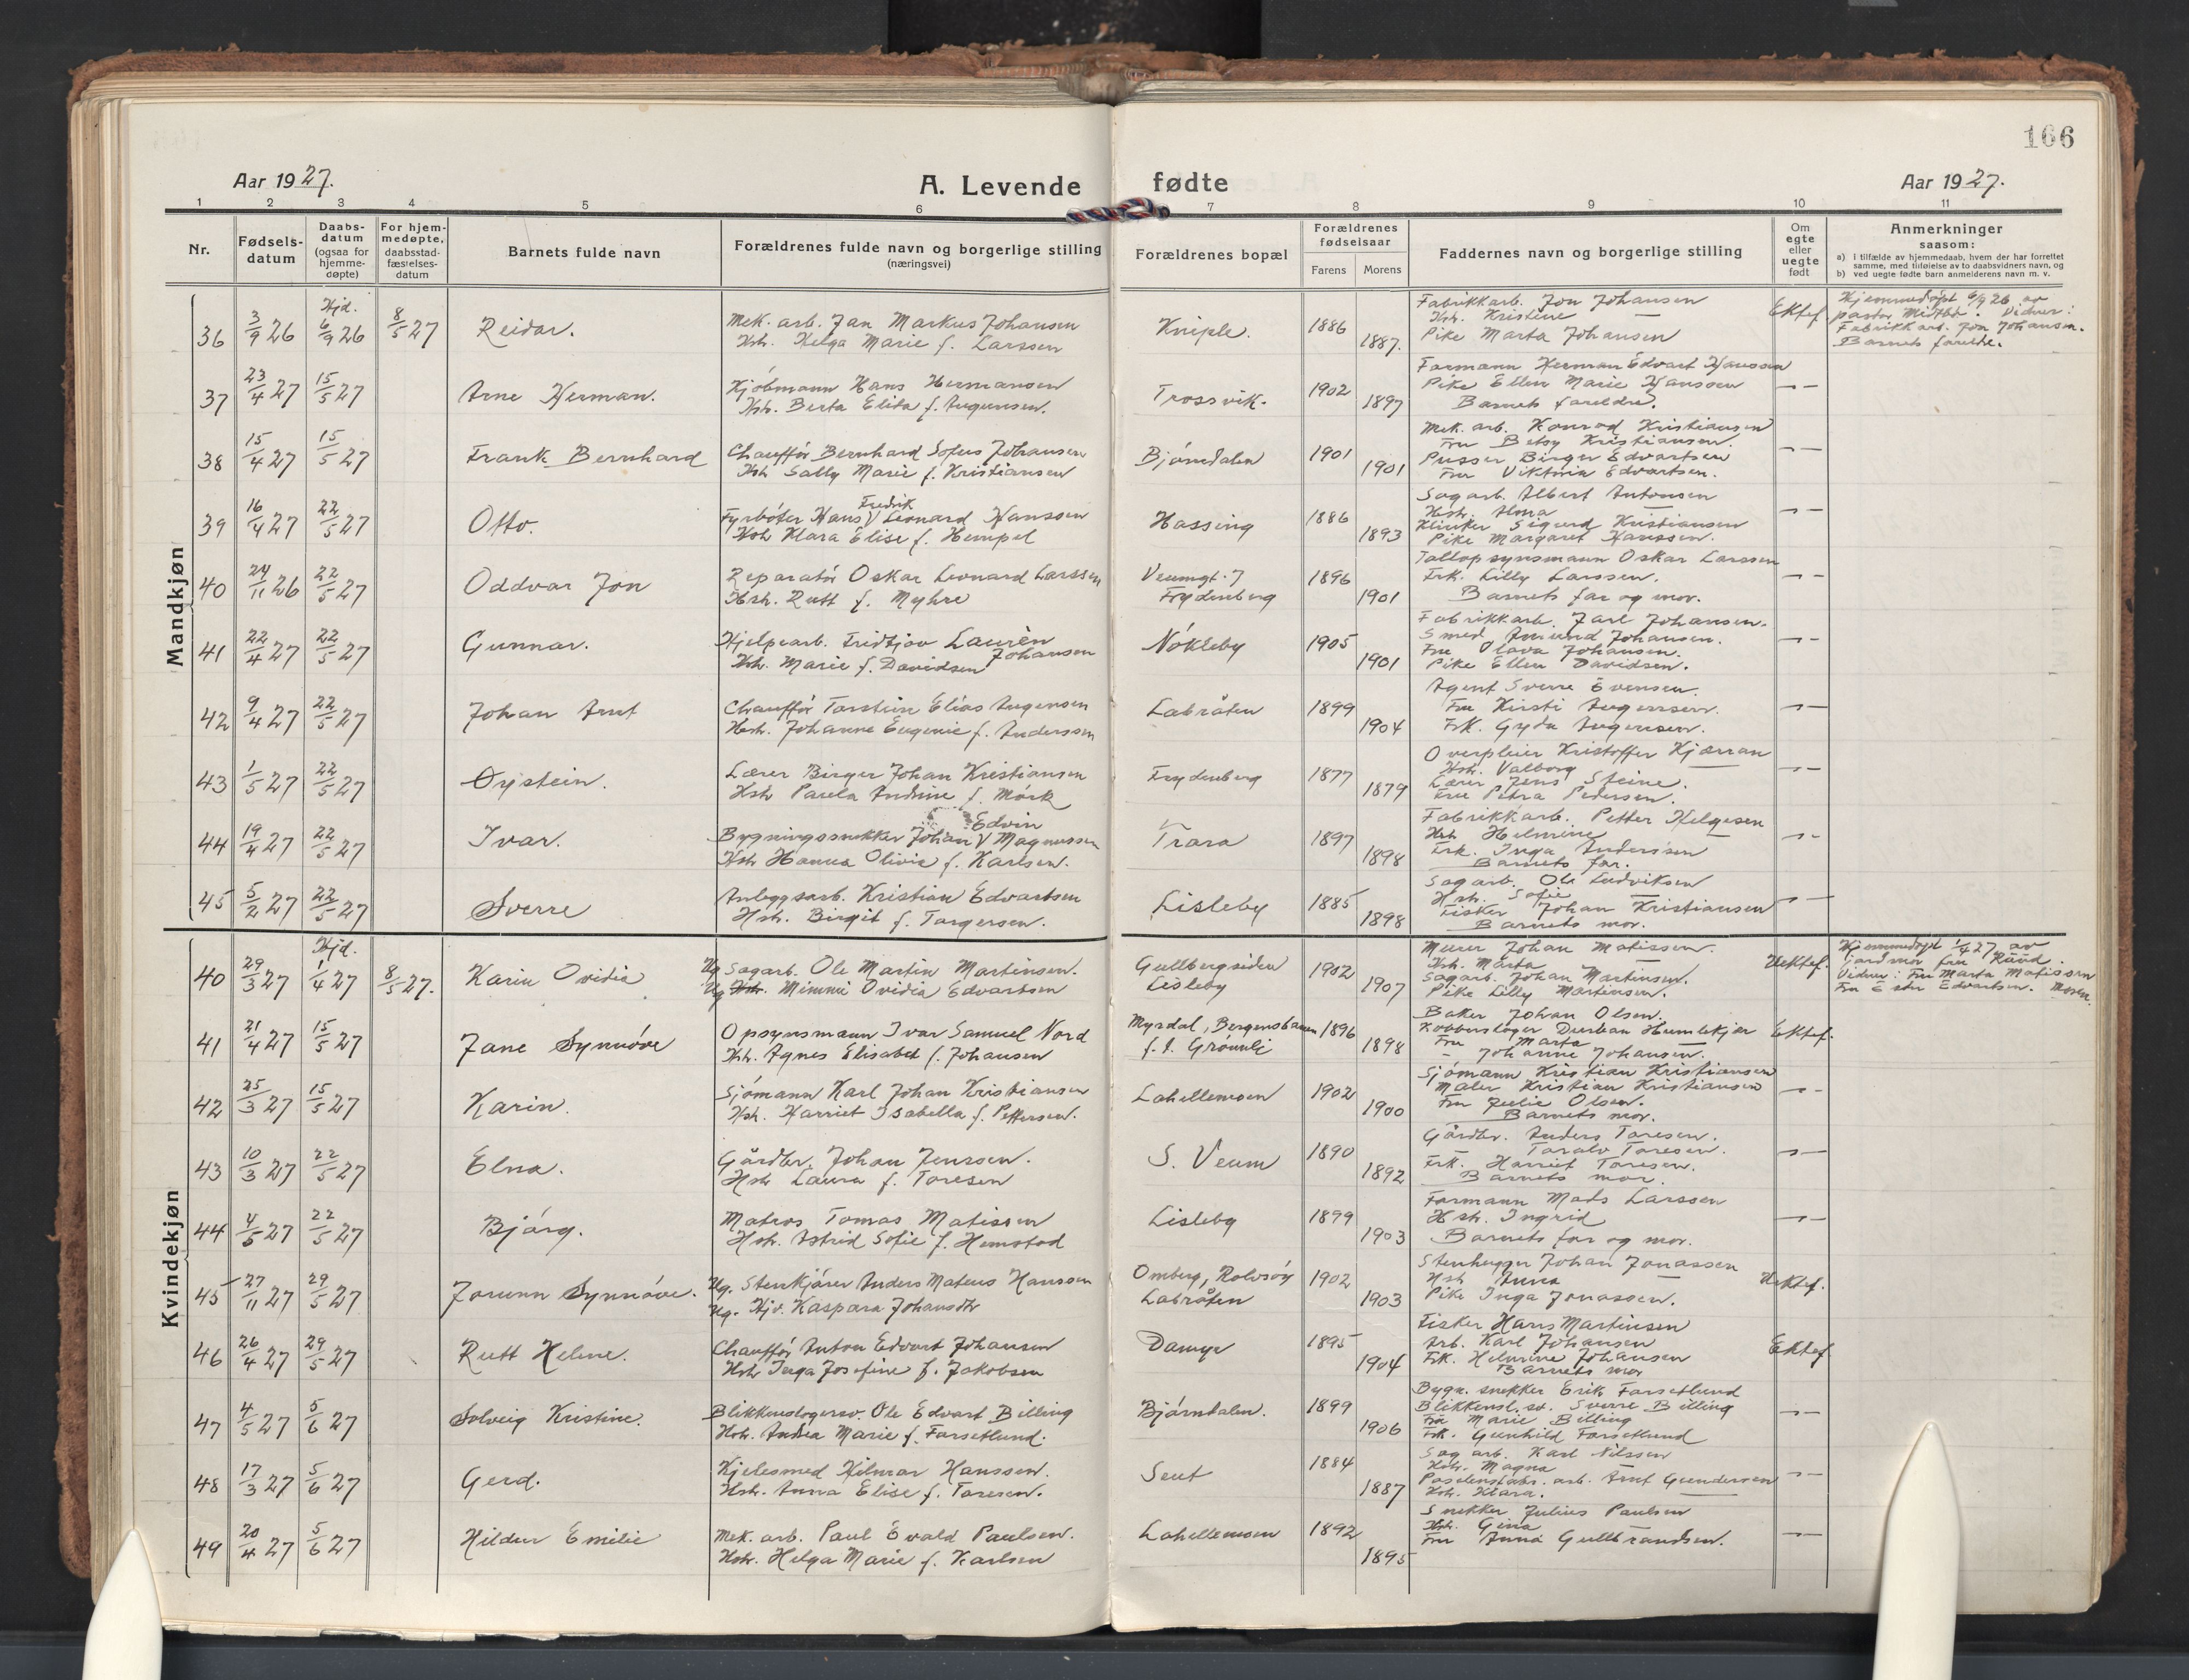 166
Aar 1927.
A. Levende fødte
Aar 1927.
1 2 3 4 5 6 7 8 9 10 11
Nr.
Fødsels-
datum
Daabs-
datum
(ogsaa for
hjemme-
døpte)
For hjem-
medøpte,
daabsstad-
fæstelses-
datum
Barnets fulde navn
Forældrenes fulde navn og borgerlige stilling
(næringsvei)
Forældrenes bopæl
Forældrenes
fødselsaar
Farens Morens
Faddernes navn og borgerlige stilling
Om
egte
eller
uegte
født
Anmerkninger
saasom:
a) i tilfælde av hjemmedaab, hvem der har forrettet
samme, med tilføielse av to daabsvidners navn, og
b) ved uegte fødte barn anmelderens navn m. v.
Mandkjøn
36 3/9 26 Hjd. 6/9 26 8/5 27 Reidar.
Mek. arb. Jan Markus Johansen
Hstr. Helga Marie f. Larssen
Kniple. 1886 1887.
Fabrikkarb. Jon Johansen
Hstr. Kristine —
Pike Marta Johansen
Ektef.
Hjemmedøpt 6/9 26 av
pastor Vidner:
Fabrikkarb. Jon Johansen.
Barnets foreldre.
37 23/4 27 15/5 27 Arne Herman.
Kjøbmann Hans Hermansen
Hstr. Berta Elida f. Augensen.
Trossvik. 1902 1897
Formann Herman Edvart Hanssen
Pike Ellen Marie Hanssen
Barnets foreldre.
— " —
38 15/4 27 15/5 27 Frank Bernhard
Chauffør Bernhard Sofus Johansen
Hstr Sally Marie f. Kristiansen
Bjørndalen 1901 1901
Mek. arb. Konrad Kristiansen
Fru Betsy Kristiansen.
Pusser Birger Edvartsen
Fru Viktoria Edvartsen.
— " —
39 16/4 27 22/5 27 Otto.
Fredrik
Fyrbøter Hans V Leonard Hanssen
Hstr Klara Elise f. Hempel
Hassing 1886 1893
Sagarb. Albert Antonsen
Hstr. Alma —
Klinker Sigurd Kristiansen
Pike Margaret Hanssen.
— " —
40 24/11 26 22/5 27 Oddvar Jon
Reparatør Oskar Leonard Larssen
Hstr. Rutt f. Myhre
Veumgt. 7
Frydenberg 1896 1901
Tollopsynsmann Oskar Larssen
Frk. Lilly Larssen.
Barnets far og mor.
— " —
41 22/4 27 22/5 27 Gunnar.
Hjelpearb. Fridtjov Laurèn
Johansen
Hstr. Marie f. Davidsen
Nøkleby 1905 1901
Fabrikkarb. Jarl Johansen.
Smed Amund Johansen.
Fru Olava Johansen.
Pike Ellen Davidsen.
— " —
42 9/4 27 22/5 27 Johan Arnt
Chauffør Torstein Elias Augensen
Hstr. Johanne Eugenie f. Anderssen
Labråten 1899 1904
Agent Sverre Evensen.
Fru Kirsti Augensen.
Frk. Gyda Augensen.
— " —
43 1/5 27 22/5 27 Øystein.
Lærer Birger Johan Kristiansen
Hstr Paula Andrine f. Mørk
Frydenberg 1877 1879
Overpleier Kristoffer Kjærran
Hstr. Valborg —
Lærer Jens Steine.
Fru Petra Pedersen.
— " —
44 19/4 27 22/5 27 Ivar.
Edvin
Bygningssnekker Johan V Magnussen
Hstr Hanna Olivie f. Karlsen.
Trara 1897 1898
Fabrikkarb. Petter Helgesen
Hstr Helmine —
Frk. Inga Anderssen
Barnets far.
— " —
45 5/2 27 22/5 27 Sverre
Anleggsarb. Kristian Edvartsen
Hstr. Birgit f. Torgersen.
Lisleby 1885 1898
Sagarb. Ole Ludviksen
Hstr. Sofie —
Fisker Johan Kristiansen
Barnets mor.
— " —
Kvindekjøn
40 29/3 27 Hjd. 1/4 27 8/5 27. Karin Ovidia
Ug Sagarb. Ole Martin Martinsen.
Ug Hstr. Mimmi Ovidia Edvartsen
Gullbergsiden
Lisleby 1902 1907
Murer Johan Matissen.
Hstr. Marta —
Sagarb. Johan Martinsen.
Pike Lilly Martinsen.
Uektef.
Hjemmedøpt 1/4 27 av
jordmor fru Ruud.
Vidner: Fru Marta Matissen
Fru Ester Edvartsen. Moren.
41 21/4 27 15/5 27 Jane Synnøve
Opsynsmann Ivar Samuel Nord
Hstr. Agnes Elisabet f. Johansen
Myrdal, Bergensbanen
f. t. Grønli 1896 1898
Baker Johan Olsen.
Kobberslager Durban Humlekjær
Fru Marta —
- Johanne Johansen.
Ektef.
42 25/3 27 15/5 27 Karin.
Sjømann Karl Johan Kristiansen
Hstr. Harriet Isabella f. Pettersen.
Lahellemoen 1902 1900
Sjømann Kristian Kristiansen
Maler Kristian Kristiansen
Fru Julie Olsen.
Barnets mor.
— " —
43 10/3 27 22/5 27 Elna.
Gårdbr. Johan Jenssen.
Hstr Laura f. Toresen
S. Veum 1890 1892
Gårdbr. Anders Toresen.
— Toralv Toresen.
Frk. Harriet Toresen.
Barnets mor.
— " —
44 4/5 27 22/5 27 Bjørg.
Matros Tomas Matissen
Hstr. Astrid Sofie f. Hemstad
Lisleby 1899 1903
Formann Mads Larssen
Hstr. Ingrid —
Barnets far og mor.
— " —
45 27/11 27 29/5 27 Jorunn Synnøve.
Ug. Stenkjører Anders Mateus Hanssen
Ug. Hjv. Kaspara Johansdtr
Omberg, Rolvsøy
Labråten 1902 1903
Stenhugger Johan Jonassen
Hstr Anna —
Pike Inga Jonassen.
Uektef.
46 26/4 27 29/5 27 Rutt Helene.
Chauffør Anton Edvart Johansen
Hstr Inga Josefine f. Jakobsen
Damyr 1895 1904
Fisker Hans Martinsen
Arb. Karl Johansen
Frk. Helmine Johansen
Barnets mor
Ektef.
47 4/5 27 5/6 27 Solveig Kristine.
Blikkenslagersv. Ole Edvart Billing
Hstr. Andrea Marie f. Forsetlund.
Bjørndalen. 1899 1906
Bygn. snekker Erik Forsetlund
Blikkensl. sv. Sverre Billing
Fru Marie Billing
Frk. Gunhild Forsetlund
— " —
48 17/3 27 5/6 27 Gerd.
Kjelesmed Hilmar Hanssen.
Hstr. Anna Elise f. Toresen.
Seut 1884 1887
Sagarb. Karl Nilssen
Hstr. Magna —
Poselensfabr. arb. Arnt Gundersen
Hstr. Klara. —
— " —
49 20/4 27 5/6 27 Hildur Emilie
Mek. arb. Paul Evald Paulsen.
Hstr. Helga Marie f. Karlsen
Lahellemoen 1892 1895
Snekker Julius Paulsen
Hstr. Gina —
Fru Anna Gullbrandsen.
— " —